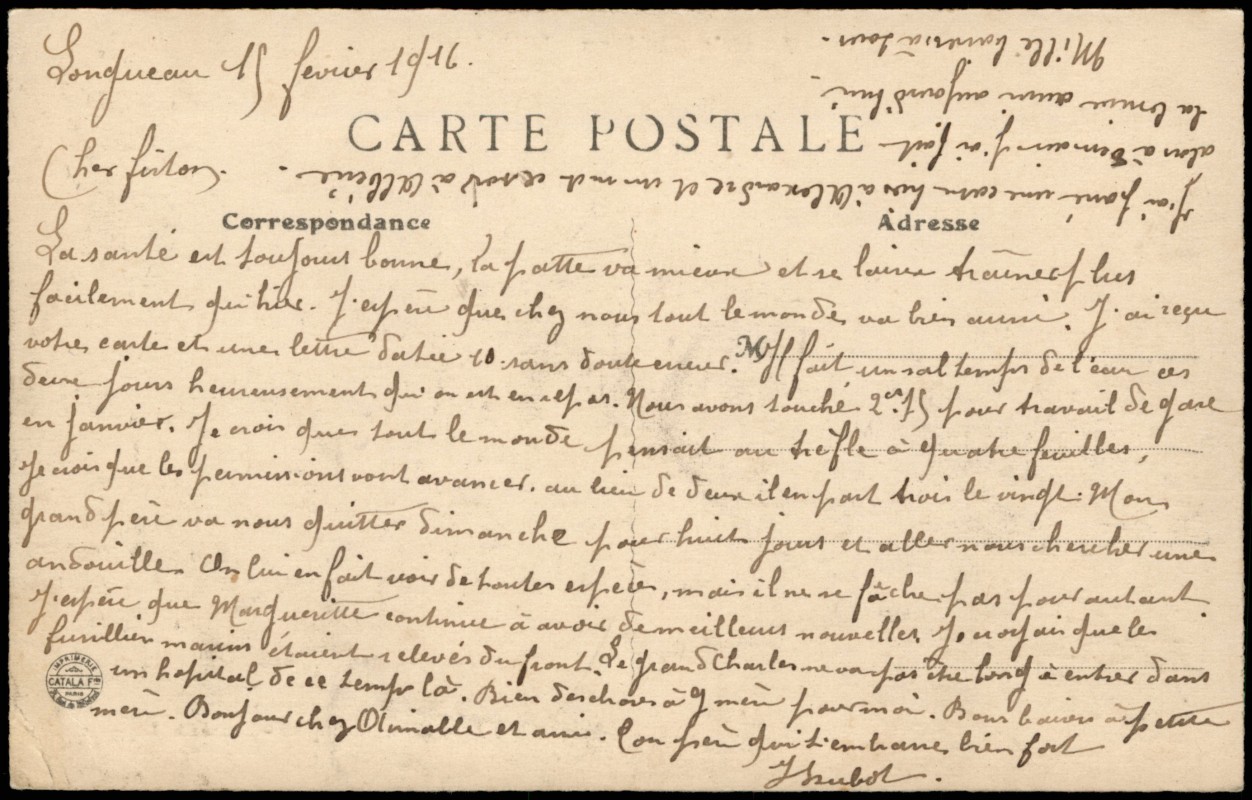 Longueau 15 février 1916.
CARTE POSTALE
Cher fiston.
Correspondance
Adresse
La santé est toujours bonne, la patte va mieux et se laisse traîner plus
facilement qu'hier. J'espère que chez nous tout le monde va bien aussi. J'ai reçu
votre carte et une lettre datée 10 sans doute erreur. M Il fait un sal temps de l'eau ces
deux jours heureusement qu'on est en repos. Nous avons touché 2 75 pour travail de gare
en janvier. Je crois que tout le monde pensait au trèfle à quatre feuilles,
Je crois que les permissions vont avancer. au lieu de deux il en part trois le vingt. Mon
grand père va nous quitter dimanche pour huit jours et aller nous chercher une
andouille. On lui en fait voir de toutes espèces, mais il ne se fâche pas pour autant
J'espère que Margueritte continue à avoir de meilleurs nouvelles. Je croyais que les
fusillien marins étaient relevés du front. Le grand Charles ne va pas être long à entrer dans
un hopital de ce temps là. Bien des choses à mère pour moi. Bons baisers à petite
mère. Bonjour chez Aimable et amis. Ton père qui t'embrasse bien fort
IMPRIMERIE
CATALA Frs
PARIS
J'ai passé une carte hier à Alexandre et un mot à Albérie
alors à demain j'ai fait
la aussi aujourd'hui
Mille baisers à tous.